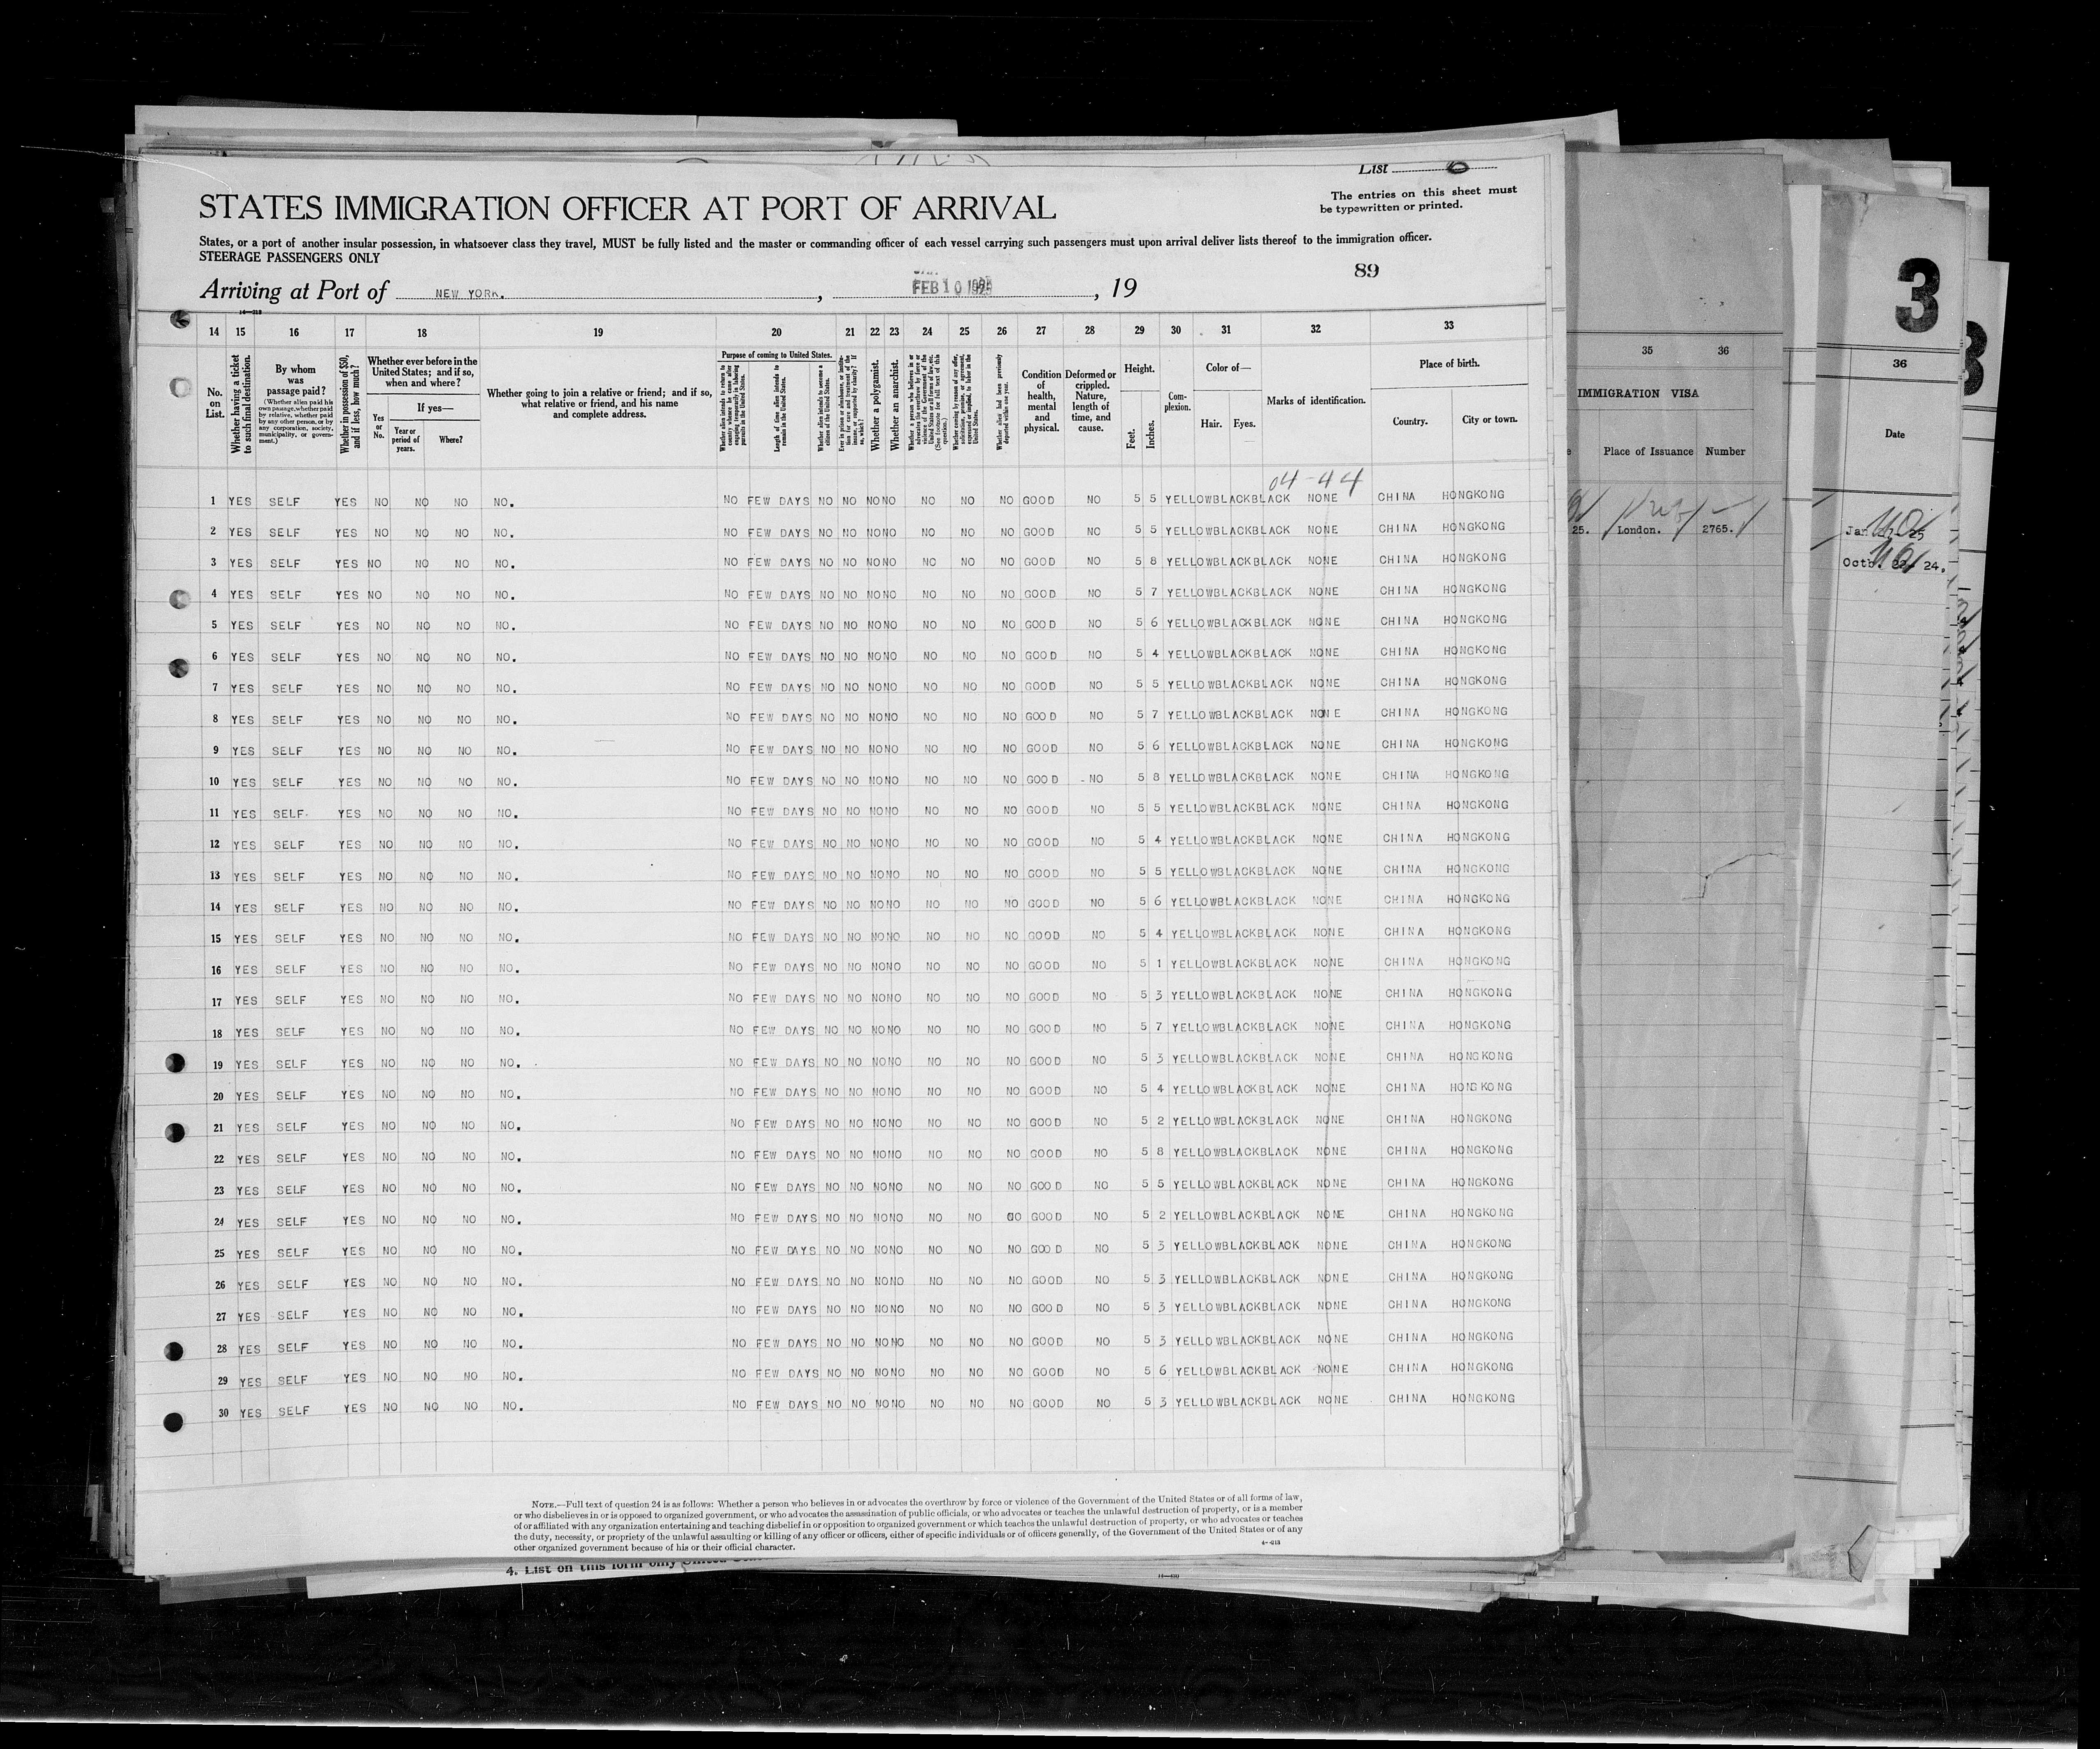 List 6
The entries on this sheet must
be typewritten or printed.
STATES IMMIGRATION OFFICER AT PORT OF ARRIVAL
States, or a port of another insular possession, in whatsoever class they travel, MUST be fully listed and the master or commanding officer of each vessel carrying such passengers must upon arrival deliver lists thereof to the immigration officer.
STEERAGE PASSENGERS ONLY
89
Arriving at Port of NEW YORK. , FEB 10 1925 , 19
14 15 16 17 18 19 20 21 22 23 24 25 26 27 28 29 30 31 32 33
No. on List.
Whether having a ticket to such final destination.
By whom was passage paid?
(Whether alien paid his own passage, whether paid by relative, whether paid by any other person, or by any corporation, society, municipality, or government.)
Whether in possession of $50, and if less, how much?
Whether ever before in the United States; and if so, when and where?
Yes or No.
If yes—
Year or period of years.
Where?
Whether going to join a relative or friend; and if so, what relative or friend, and his name and complete address.
Purpose of coming to United States.
Whether alien intends to return to country whence he came after engaging temporarily in laboring pursuits in the United States.
Length of time alien intends to remain in the United States.
Whether alien intends to become a citizen of the United States.
Whether a polygamist.
Whether an anarchist.
Condition of health, mental and physical.
Deformed or crippled. Nature, length of time, and cause.
Height.
Feet.
Inches.
Complexion.
Color of—
Hair. Eyes.
Marks of identification.
Place of birth.
Country. City or town.
04-44
1 YES SELF YES NO NO NO NO. NO FEW DAYS NO NO NONO NO NO NO GOOD NO 5 5 YELLOWBLACKBLACK NONE CHINA HONGKONG
2 YES SELF YES NO NO NO NO. NO FEW DAYS NO NO NONO NO NO NO GOOD NO 5 5 YELLOWBLACKBLACK NONE CHINA HONGKONG
3 YES SELF YES NO NO NO NO. NO FEW DAYS NO NO NONO NO NO NO GOOD NO 5 8 YELLOWBLACKBLACK NONE CHINA HONGKONG
4 YES SELF YES NO NO NO NO. NO FEW DAYS NO NO NONO NO NO NO GOOD NO 5 7 YELLOWBLACKBLACK NONE CHINA HONGKONG
5 YES SELF YES NO NO NO NO. NO FEW DAYS NO NO NONO NO NO NO GOOD NO 5 6 YELLOWBLACKBLACK NONE CHINA HONGKONG
6 YES SELF YES NO NO NO NO. NO FEW DAYS NO NO NONO NO NO NO GOOD NO 5 4 YELLOWBLACKBLACK NONE CHINA HONGKONG
7 YES SELF YES NO NO NO NO. NO FEW DAYS NO NO NONO NO NO NO GOOD NO 5 5 YELLOWBLACKBLACK NONE CHINA HONGKONG
8 YES SELF YES NO NO NO NO. NO FEW DAYS NO NO NONO NO NO NO GOOD NO 5 7 YELLOWBLACKBLACK NONE CHINA HONGKONG
9 YES SELF YES NO NO NO NO. NO FEW DAYS NO NO NONO NO NO NO GOOD NO 5 6 YELLOWBLACKBLACK NONE CHINA HONGKONG
10 YES SELF YES NO NO NO NO. NO FEW DAYS NO NO NONO NO NO NO GOOD NO 5 8 YELLOWBLACKBLACK NONE CHINA HONGKONG
11 YES SELF YES NO NO NO NO. NO FEW DAYS NO NO NONO NO NO NO GOOD NO 5 5 YELLOWBLACKBLACK NONE CHINA HONGKONG
12 YES SELF YES NO NO NO NO. NO FEW DAYS NO NO NONO NO NO NO GOOD NO 5 4 YELLOWBLACKBLACK NONE CHINA HONGKONG
13 YES SELF YES NO NO NO NO. NO FEW DAYS NO NO NONO NO NO NO GOOD NO 5 5 YELLOWBLACKBLACK NONE CHINA HONGKONG
14 YES SELF YES NO NO NO NO. NO FEW DAYS NO NO NONO NO NO NO GOOD NO 5 6 YELLOWBLACKBLACK NONE CHINA HONGKONG
15 YES SELF YES NO NO NO NO. NO FEW DAYS NO NO NONO NO NO NO GOOD NO 5 4 YELLOWBLACKBLACK NONE CHINA HONGKONG
16 YES SELF YES NO NO NO NO. NO FEW DAYS NO NO NONO NO NO NO GOOD NO 5 1 YELLOWBLACKBLACK NONE CHINA HONGKONG
17 YES SELF YES NO NO NO NO. NO FEW DAYS NO NO NONO NO NO NO GOOD NO 5 3 YELLOWBLACKBLACK NONE CHINA HONGKONG
18 YES SELF YES NO NO NO NO. NO FEW DAYS NO NO NONO NO NO NO GOOD NO 5 7 YELLOWBLACKBLACK NONE CHINA HONGKONG
19 YES SELF YES NO NO NO NO. NO FEW DAYS NO NO NONO NO NO NO GOOD NO 5 3 YELLOWBLACKBLACK NONE CHINA HONGKONG
20 YES SELF YES NO NO NO NO. NO FEW DAYS NO NO NONO NO NO NO GOOD NO 5 4 YELLOWBLACKBLACK NONE CHINA HONGKONG
21 YES SELF YES NO NO NO NO. NO FEW DAYS NO NO NONO NO NO NO GOOD NO 5 2 YELLOWBLACKBLACK NONE CHINA HONGKONG
22 YES SELF YES NO NO NO NO. NO FEW DAYS NO NO NONO NO NO NO GOOD NO 5 8 YELLOWBLACKBLACK NONE CHINA HONGKONG
23 YES SELF YES NO NO NO NO. NO FEW DAYS NO NO NONO NO NO NO GOOD NO 5 5 YELLOWBLACKBLACK NONE CHINA HONGKONG
24 YES SELF YES NO NO NO NO. NO FEW DAYS NO NO NONO NO NO NO GOOD NO 5 2 YELLOWBLACKBLACK NONE CHINA HONGKONG
25 YES SELF YES NO NO NO NO. NO FEW DAYS NO NO NONO NO NO NO GOOD NO 5 3 YELLOWBLACKBLACK NONE CHINA HONGKONG
26 YES SELF YES NO NO NO NO. NO FEW DAYS NO NO NONO NO NO NO GOOD NO 5 3 YELLOWBLACKBLACK NONE CHINA HONGKONG
27 YES SELF YES NO NO NO NO. NO FEW DAYS NO NO NONO NO NO NO GOOD NO 5 3 YELLOWBLACKBLACK NONE CHINA HONGKONG
28 YES SELF YES NO NO NO NO. NO FEW DAYS NO NO NONO NO NO NO GOOD NO 5 3 YELLOWBLACKBLACK NONE CHINA HONGKONG
29 YES SELF YES NO NO NO NO. NO FEW DAYS NO NO NONO NO NO NO GOOD NO 5 6 YELLOWBLACKBLACK NONE CHINA HONGKONG
30 YES SELF YES NO NO NO NO. NO FEW DAYS NO NO NONO NO NO NO GOOD NO 5 3 YELLOWBLACKBLACK NONE CHINA HONGKONG
NOTE.—Full text of question 24 is as follows: Whether a person who believes in or advocates the overthrow by force or violence of the Government of the United States or of all forms of law,
or who disbelieves in or is opposed to organized government, or who advocates the assassination of public officials, or who advocates or teaches the unlawful destruction of property, or is a member
of or affiliated with any organization entertaining and teaching disbelief in or opposition to organized government or which teaches the unlawful destruction of property, or who advocates or teaches
the duty, necessity, or propriety of the unlawful assaulting or killing of any officer or officers, either of specific individuals or of officers generally, of the Government of the United States or of any
other organized government because of his or their official character.
4. List on this form only
35 36
IMMIGRATION VISA
Place of Issuance Number
25. London. 2765.
3
36
Date
Jan 25
Octo. 24.